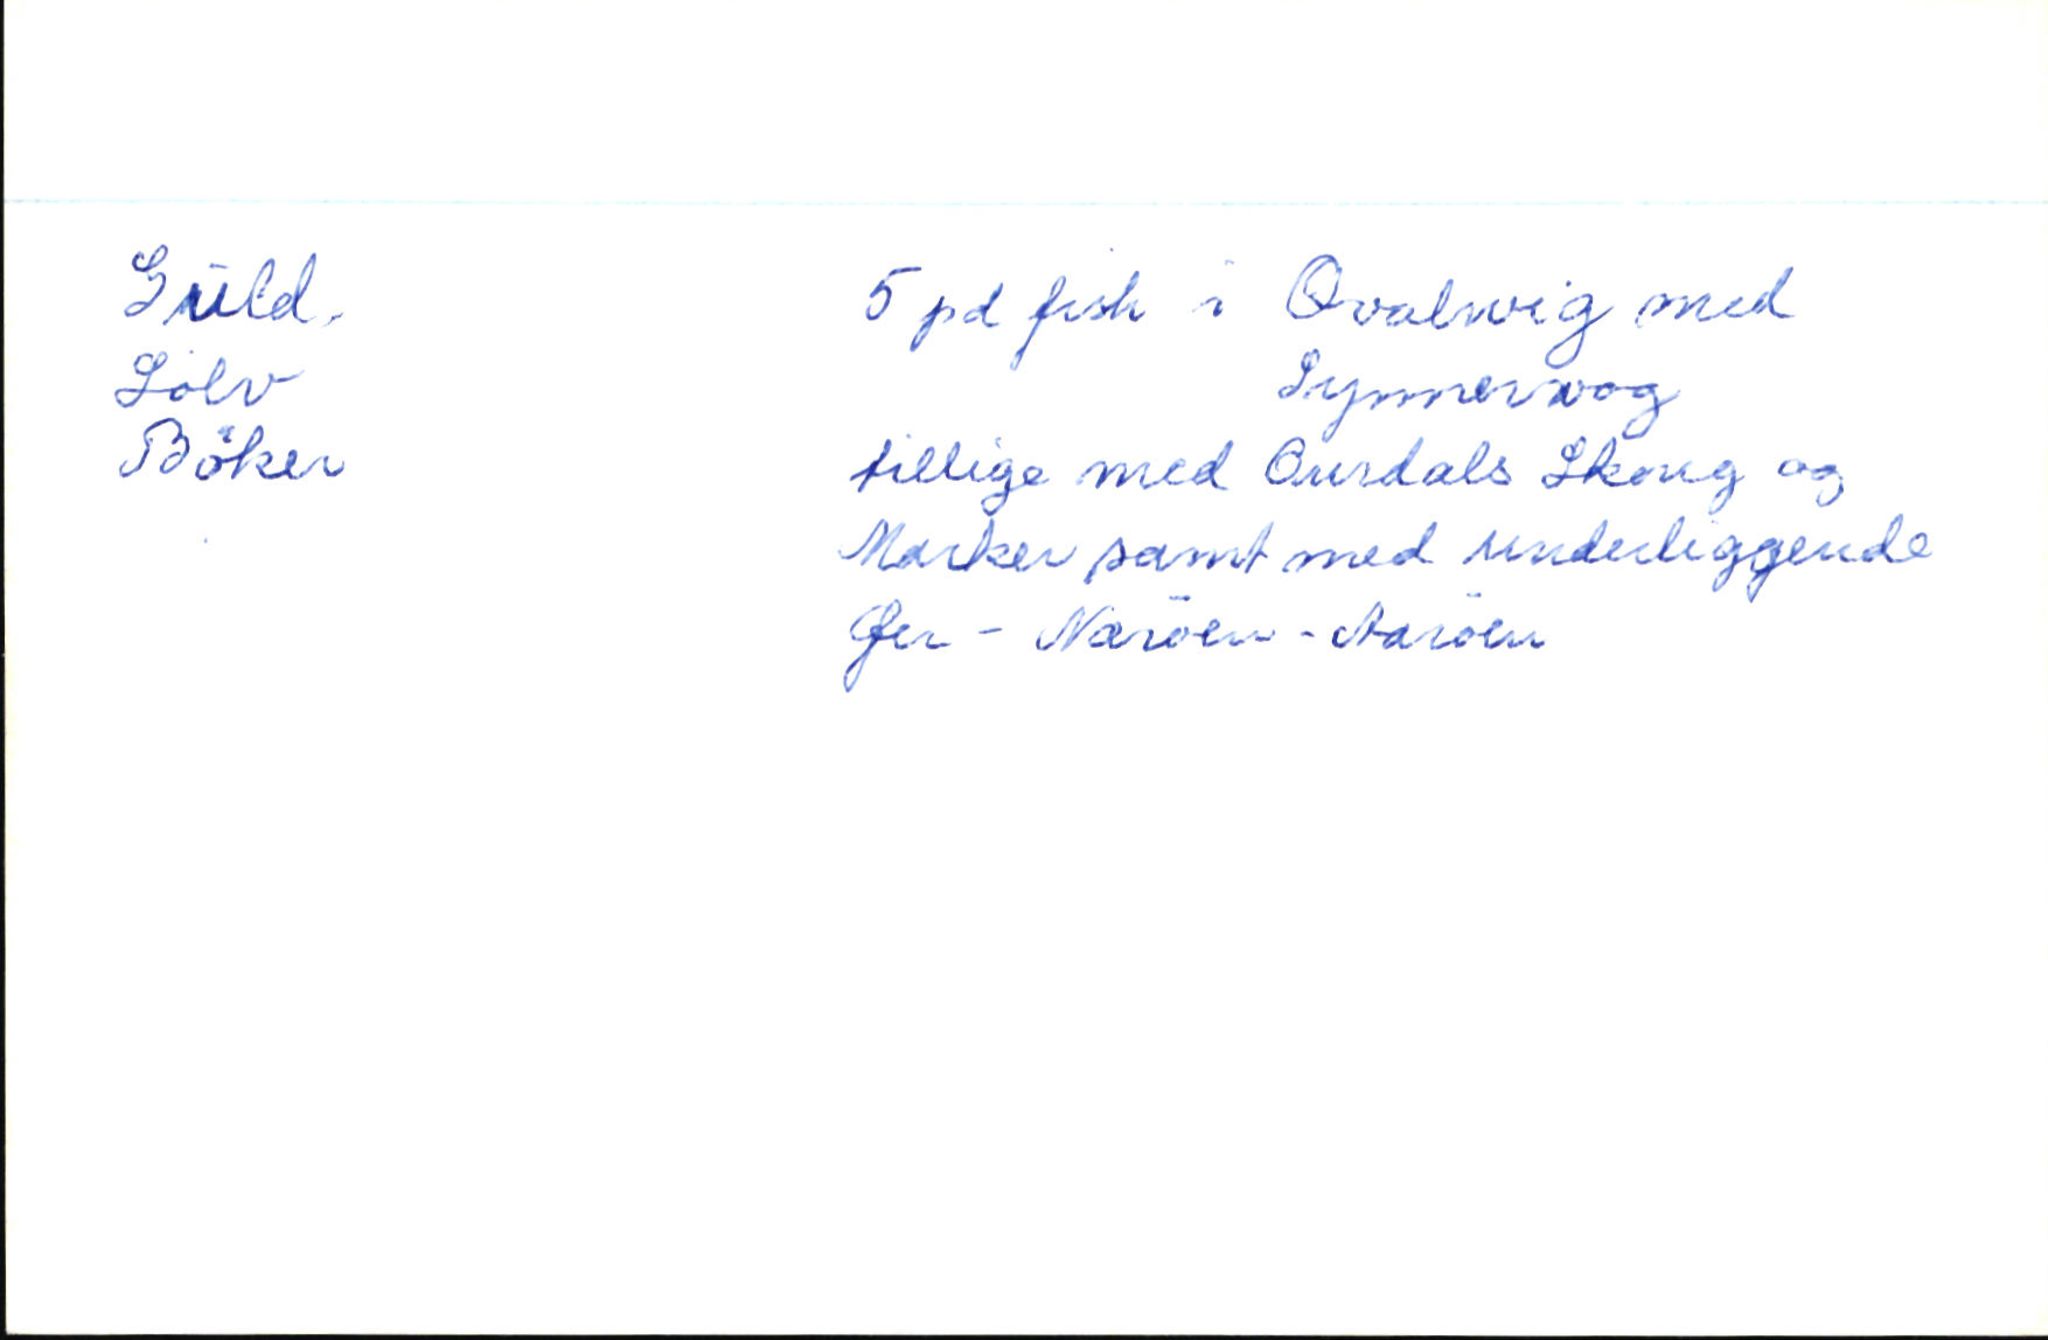 Güld.
Sölv
Böker
5 pd fisk i Qvalwig med
Synnerwog
tillige med Ourdals Skoug og
Marker samt med underliggende
Øer - Naröen - Aaröen